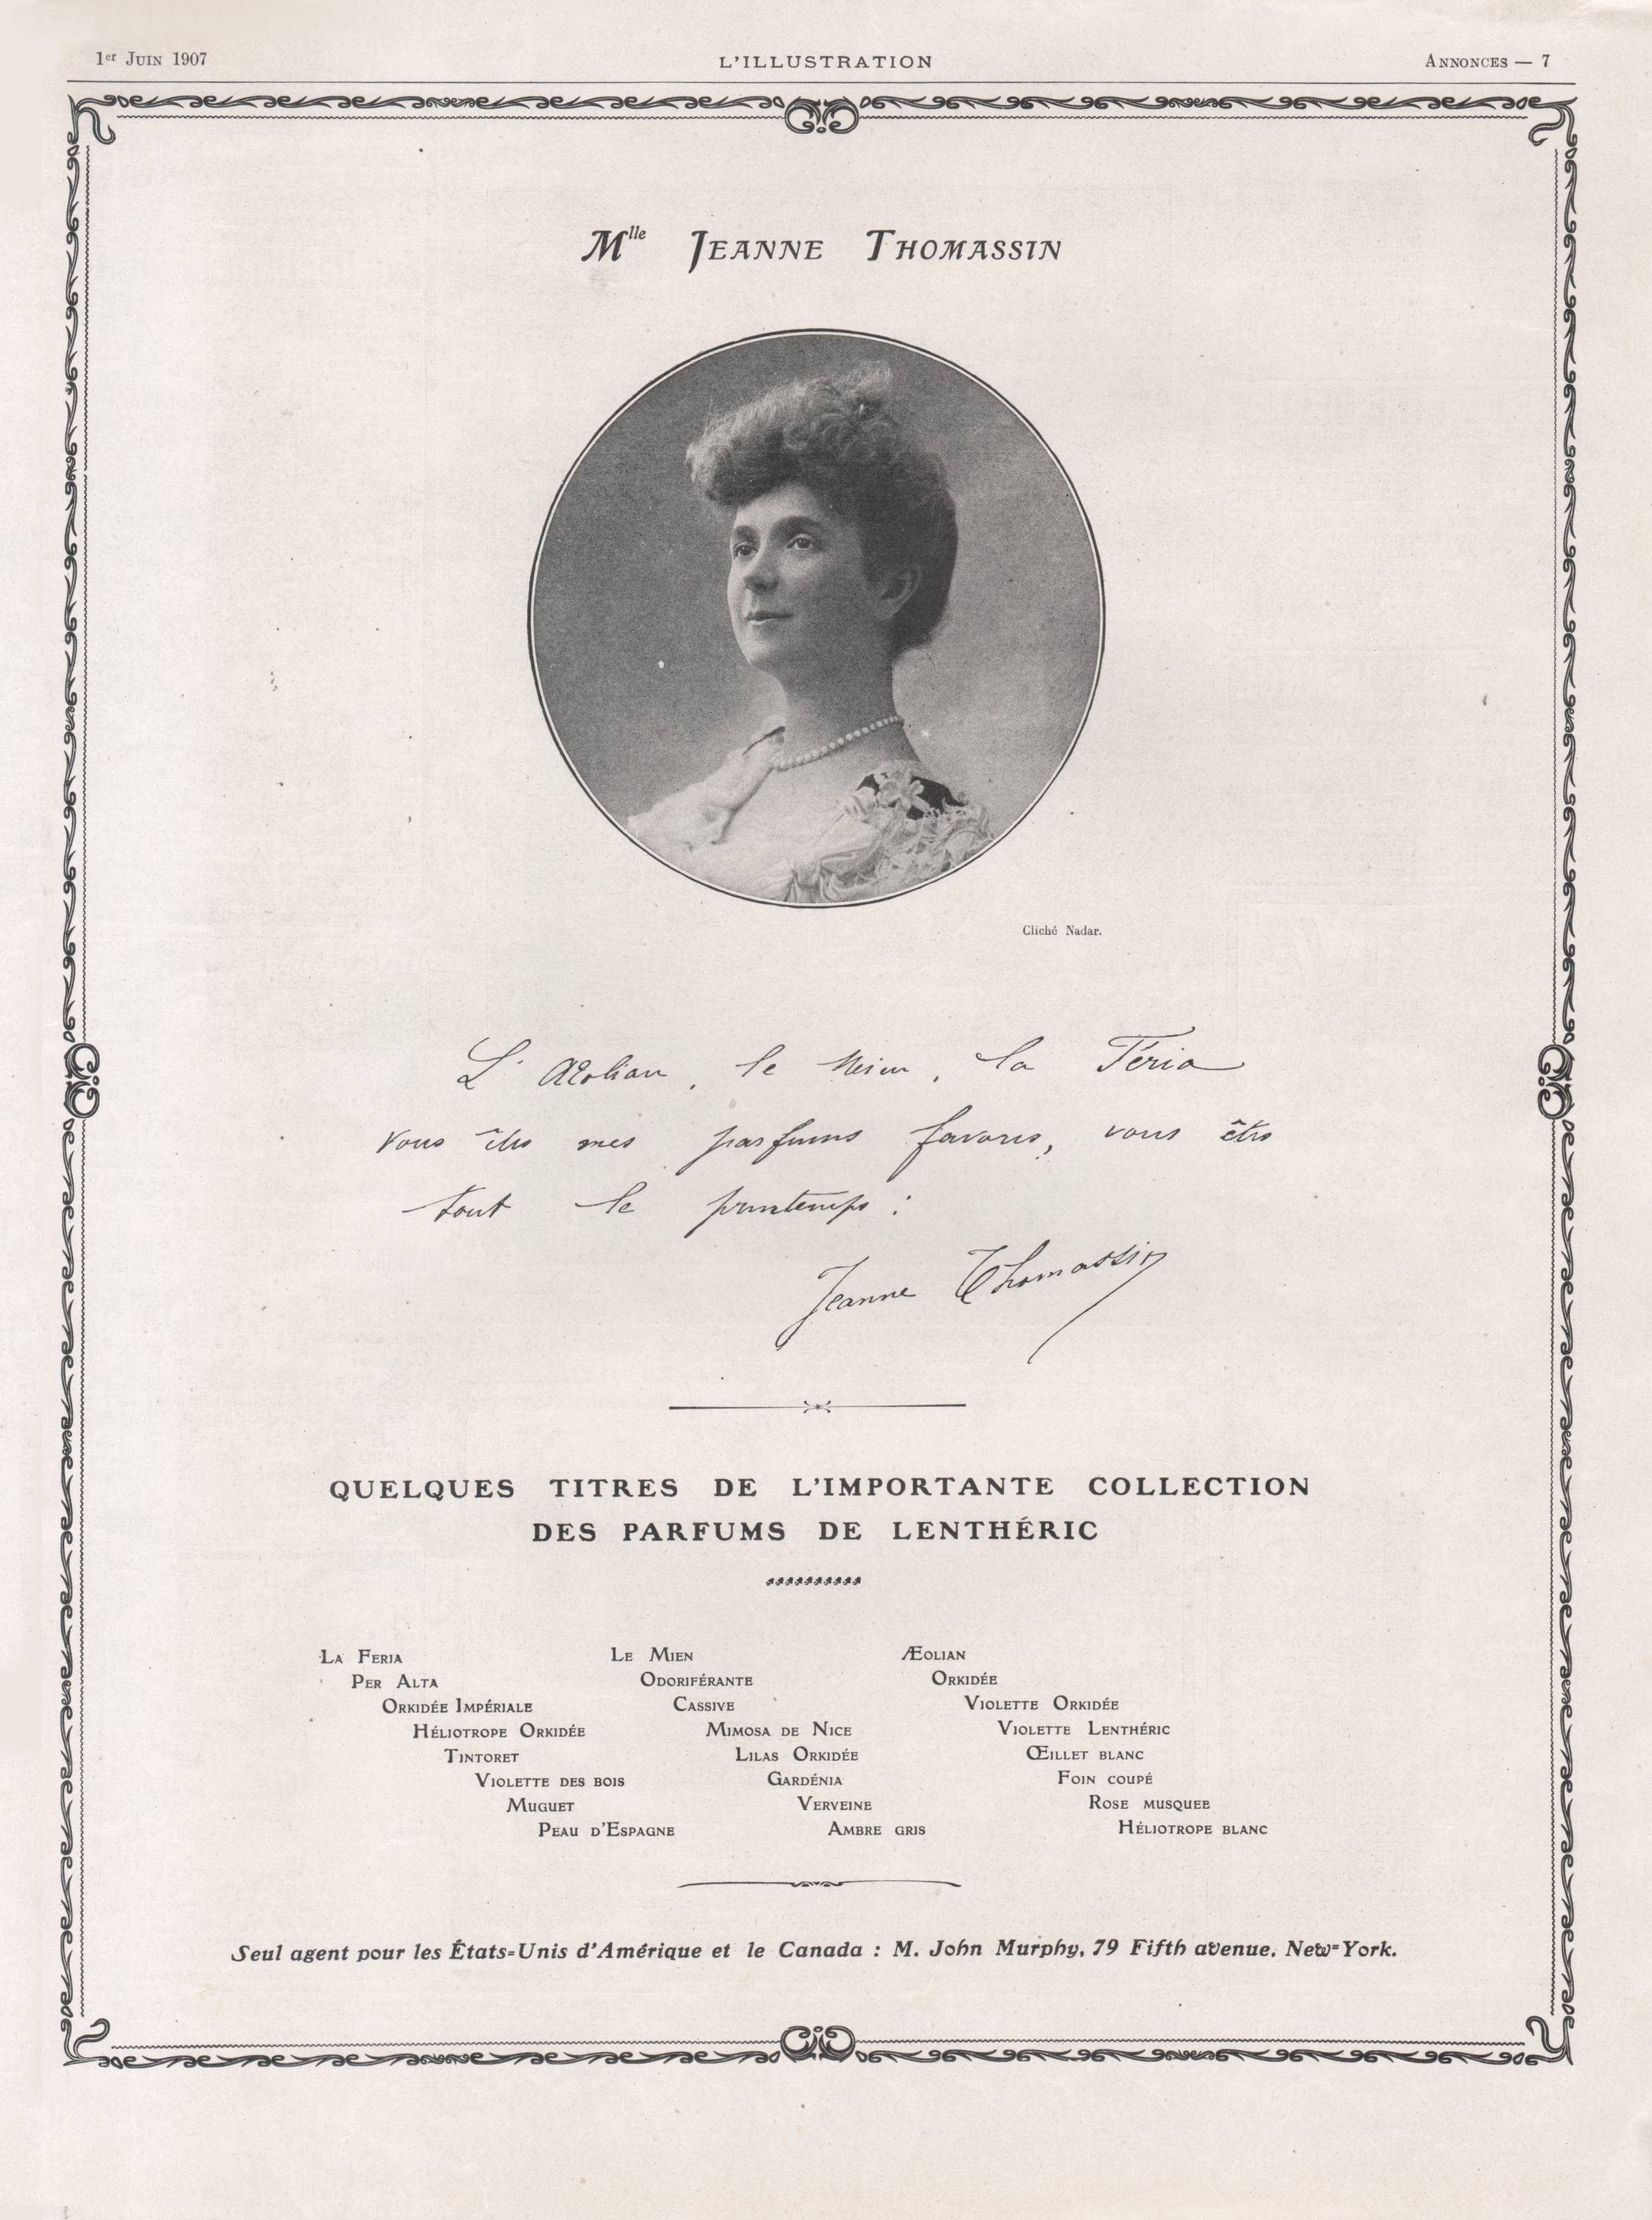 1er Juin 1907
L'ILLUSTRATION
Annonces — 7
Mlle Jeanne Thomassin
Cliché Nadar.
L'Æolian, le Mien, la Féria
vous êtes mes parfums favoris, vous êtes
tout le printemps :
Jeanne Thomassin
QUELQUES TITRES DE L'IMPORTANTE COLLECTION
DES PARFUMS DE LENTHÉRIC
La Feria
Per Alta
Orkidée Impériale
Héliotrope Orkidée
Tintoret
Violette des bois
Muguet
Peau d'Espagne
Le Mien
Odoriférante
Cassive
Mimosa de Nice
Lilas Orkidée
Gardénia
Verveine
Ambre gris
Æolian
Orkidée
Violette Orkidée
Violette Lenthéric
Œillet blanc
Foin coupé
Rose musquee
Héliotrope blanc
Seul agent pour les États-Unis d'Amérique et le Canada : M. John Murphy, 79 Fifth avenue. New-York.